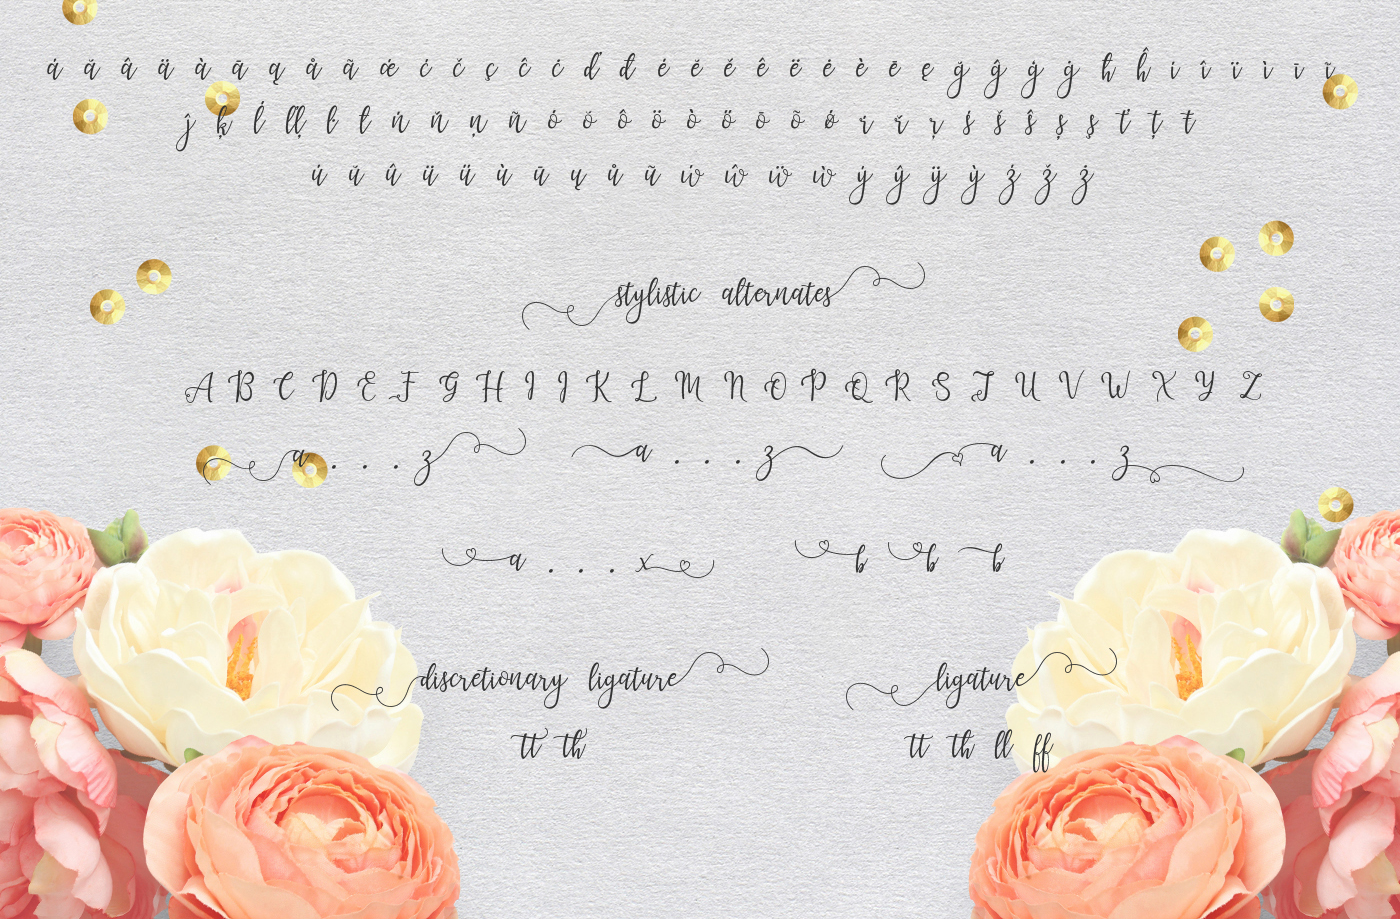 á ă â ä à ā ą å ã æ ć č ç ĉ ċ ď đ é ĕ ě ê ë ė è ē ę ğ ĝ ġ ġ ħ ĥ í î ï ì ī ĩ
ĵ ķ ĺ ľļ ŀ ł ń ň ņ ñ ó ŏ ô ö ò ő ō õ ø ŕ ř ŗ ś š ŝ ș ş ť ț ŧ
ú ŭ û ü ű ù ū ų ů ũ ẃ ŵ ẅ ẁ ý ŷ ÿ ỳ ź ž ż
stylistic alternates
A B C D E F G H I J K L M N O P Q R S T U V W X Y Z
a . . . z a . . . z a . . . z
a . . . x b b b
discretionary ligature ligature
tt th tt th ll ff